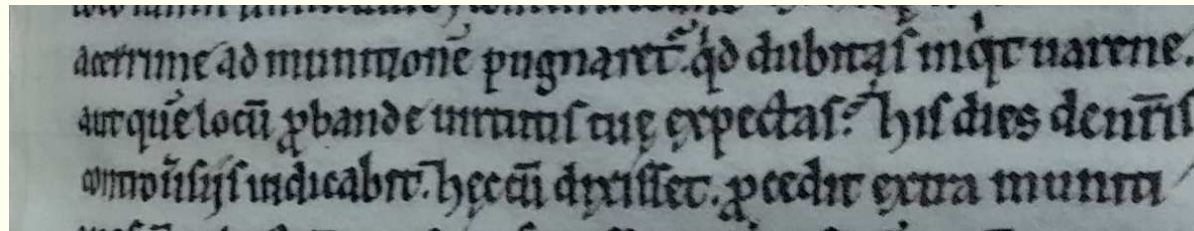 acerrime ad munitionē pugnaret᷑. qͥd dubitas inqͥt uarene.
aut quē locū ꝓbande uirtutis tuę expectas? his dies de nr̄is
controu̾sijs iudicabit. hęc cū dixisset. ꝓcedit extra muniti